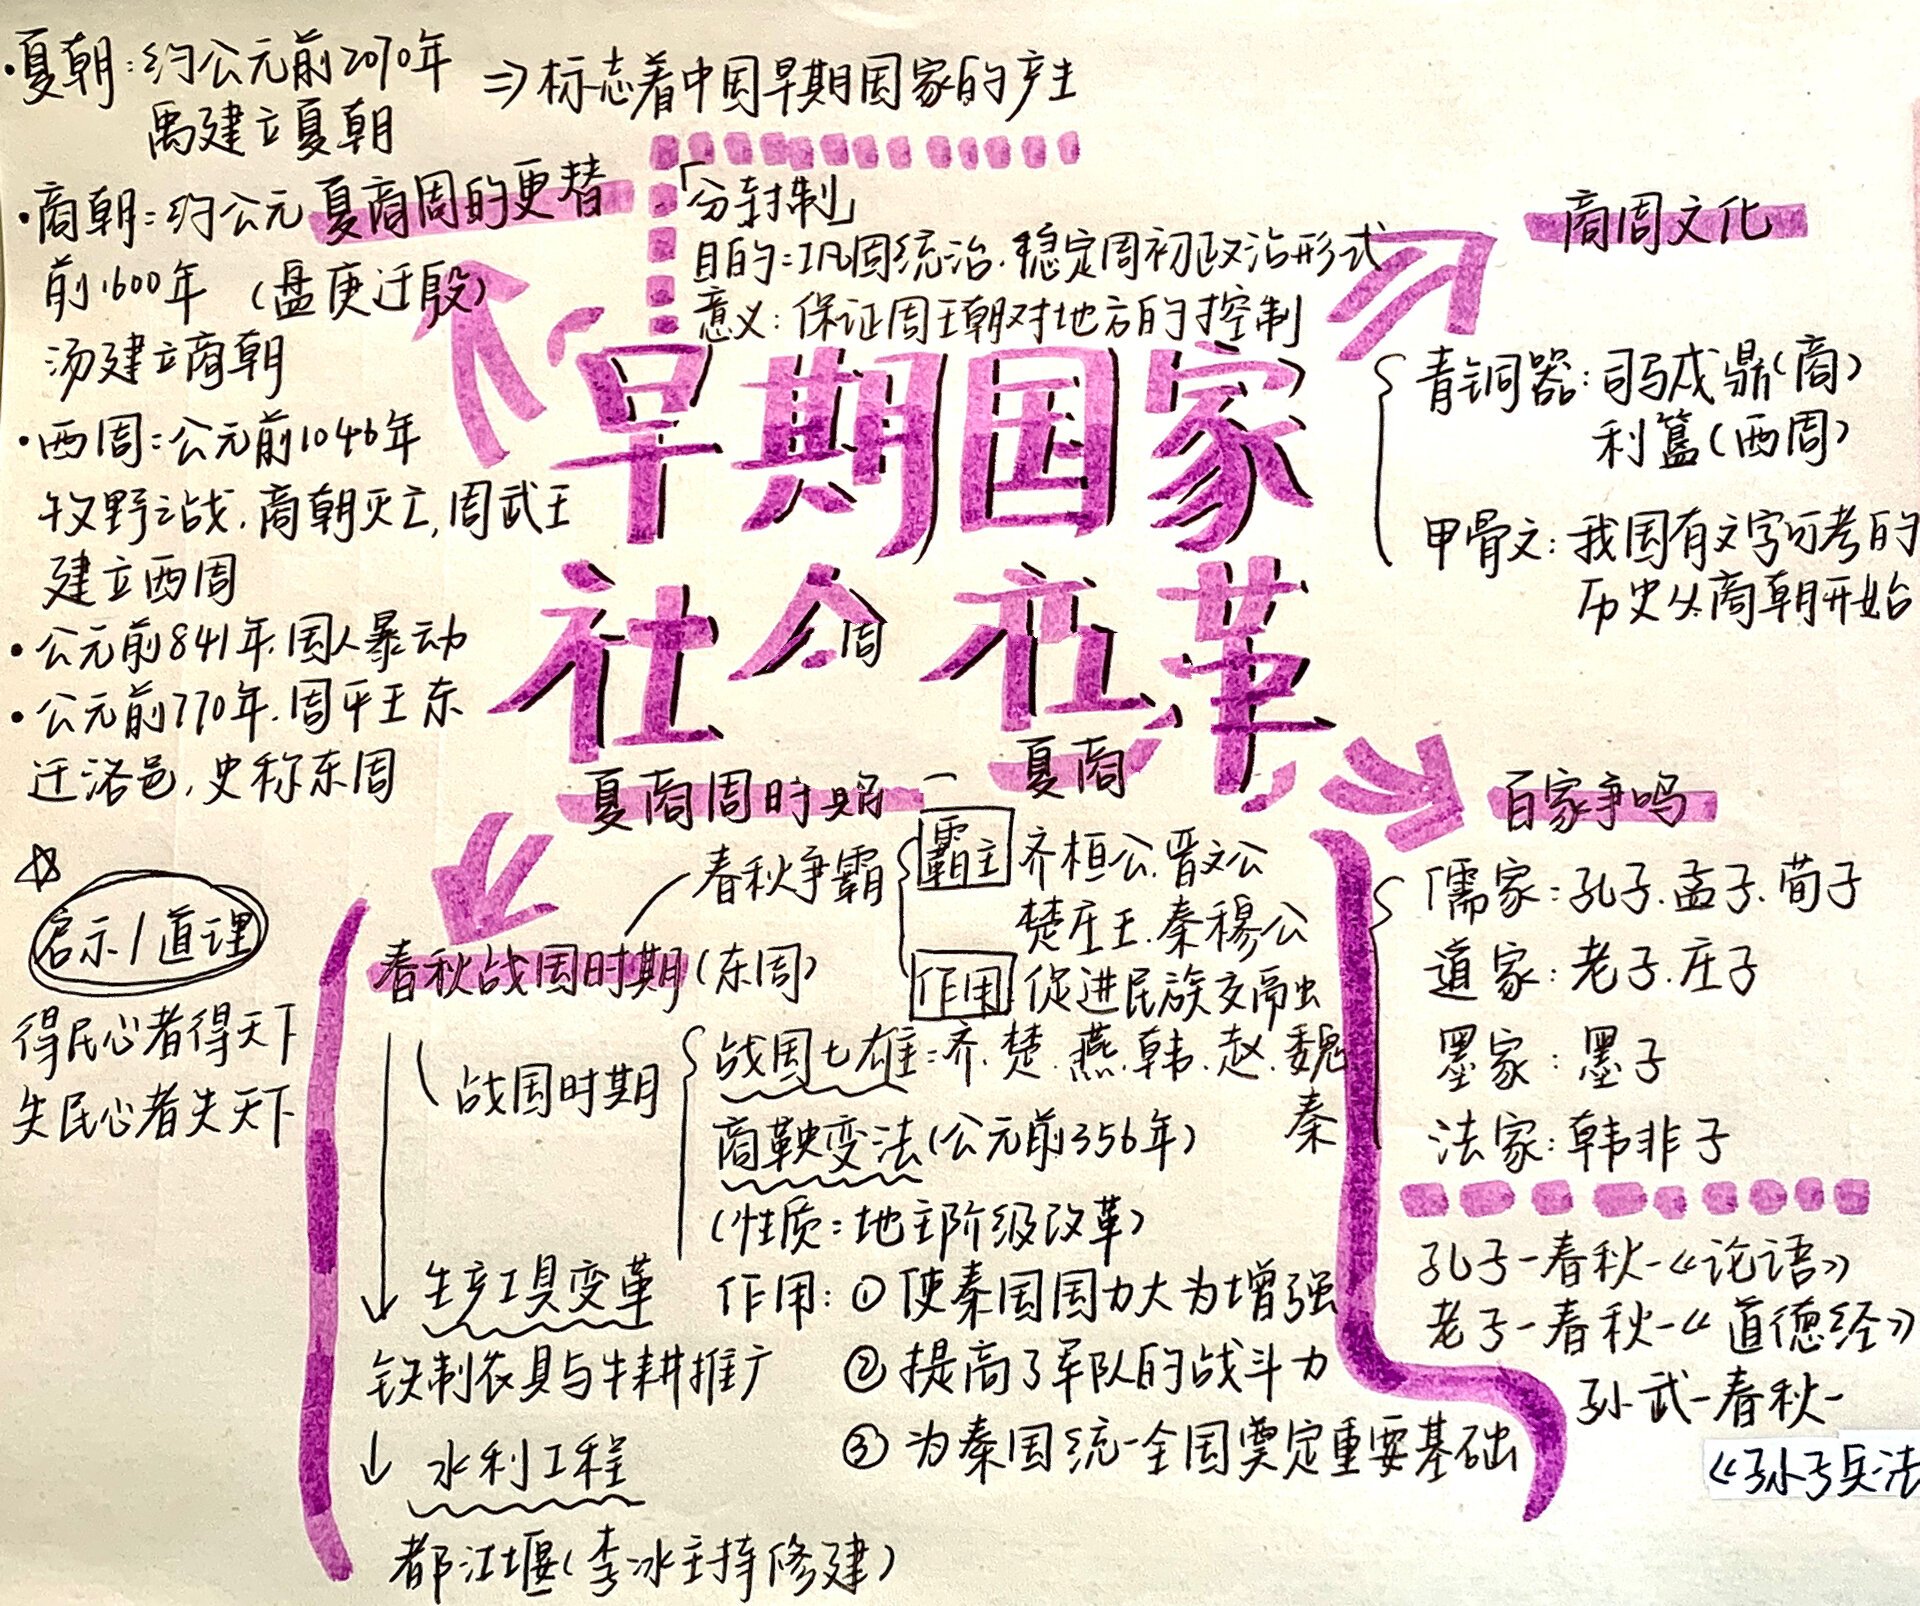 ·夏朝：约公元前2070年
禹建立夏朝
⇒标志着中国早期国家的产生
·商朝：约公元
前1600年（盘庚迁殷）
汤建立商朝
·西周：公元前1046年
牧野之战，商朝灭亡，周武王
建立西周
·公元前841年，国人暴动
·公元前770年，周平王东
迁洛邑，史称东周
夏商周的更替
「分封制」
目的：巩周统治，稳定周初政治形式
意义：保证周王朝对地方的控制
早期国家
社会变革
周
夏商
夏商周时期
商周文化
青铜器：司马戊鼎（商）
利簋（西周）
甲骨文：我国有文字可考的
历史从商朝开始
启示/道理
得民心者得天下
失民心者失天下
春秋战国时期（东周）
春秋争霸
霸主 齐桓公.晋文公
楚庄王.秦穆公
作用：促进民族交融
战国时期
战国七雄：齐.楚.燕.韩.赵.魏
秦
商鞅变法（公元前356年）
（性质：地主阶级改革）
作用：①使秦国国力大为增强
②提高了军队的战斗力
③为秦国统一全国奠定重要基础
生产工具变革
铁制农具与牛耕推广
水利工程
都江堰（李冰主持修建）
百家争鸣
儒家：孔子.孟子.荀子
道家：老子.庄子
墨家：墨子
法家：韩非子
孔子-春秋-《论语》
老子-春秋-《道德经》
孙武-春秋-
《孙子兵法